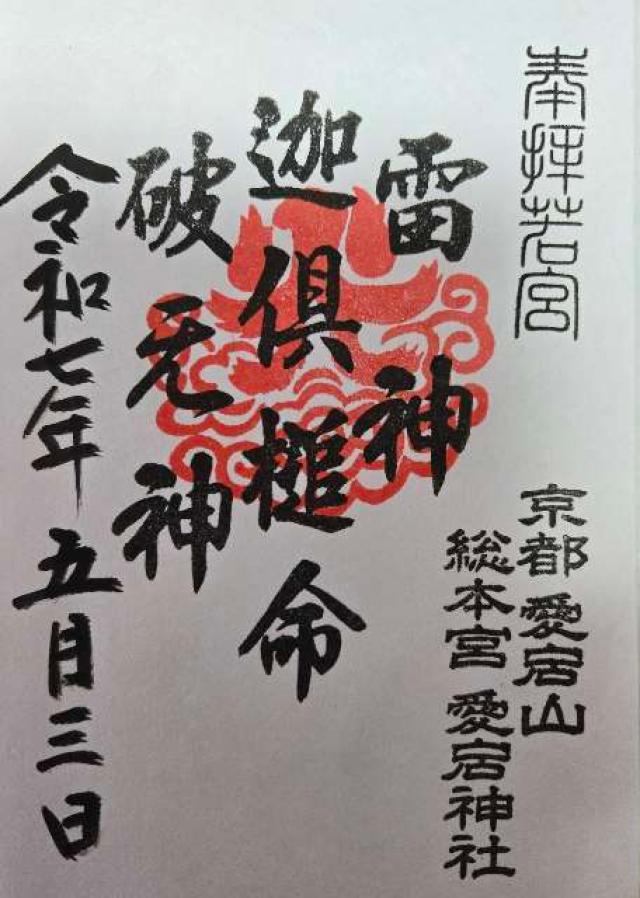 奉拝若宮
京都 愛宕山
総本宮 愛宕神社
雷神
迦倶槌命
破无神
令和七年 五月三日